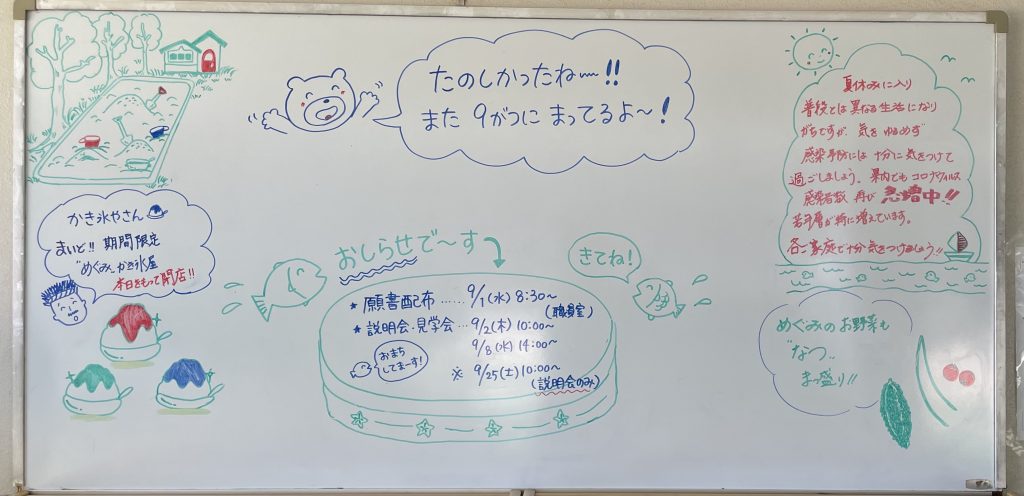 たのしかったね〜!!
また 9がつに まってるよ〜!
かき氷やさん
まいど!! 期間限定
"めぐみ"かき氷屋
本日をもって閉店!!
おしらせで〜す
きてね!
★ 願書配布……9/1(水) 8:30〜
(職員室)
★ 説明会・見学会…9/2(木) 10:00〜
9/8(水) 14:00〜
おまち
してまーす!
※ 9/25(土) 10:00〜
(説明会のみ)
夏休みに入り
普段とは異なる生活になり
がちですが 気をゆるめず
感染予防には十分に気をつけて
過ごしましょう。県内でもコロナウィルス
感染者数 再び 急増中!!
若年層が特に増えています。
各ご家庭で十分気をつけましょう!!
めぐみのお野菜も
"なつ"
まっ盛り!!